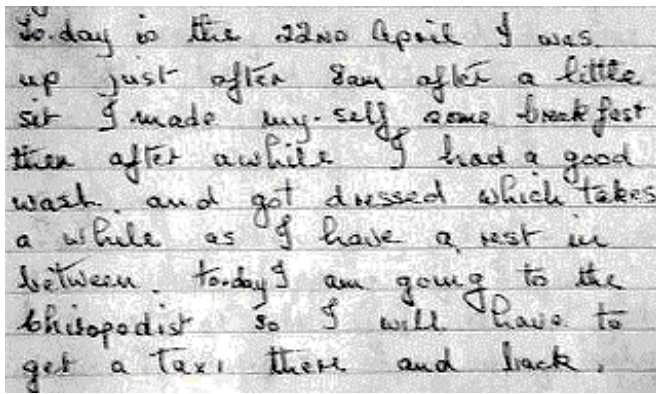 To.day is the 22ND April I was
up just after 8am after a little
sit I made my-self some breakfast
then after awhile I had a good
wash. and got dressed which takes
a while as I have a rest in
between. to.day I am going to the
Chiropodist so I will have to
get a Taxi there and back.